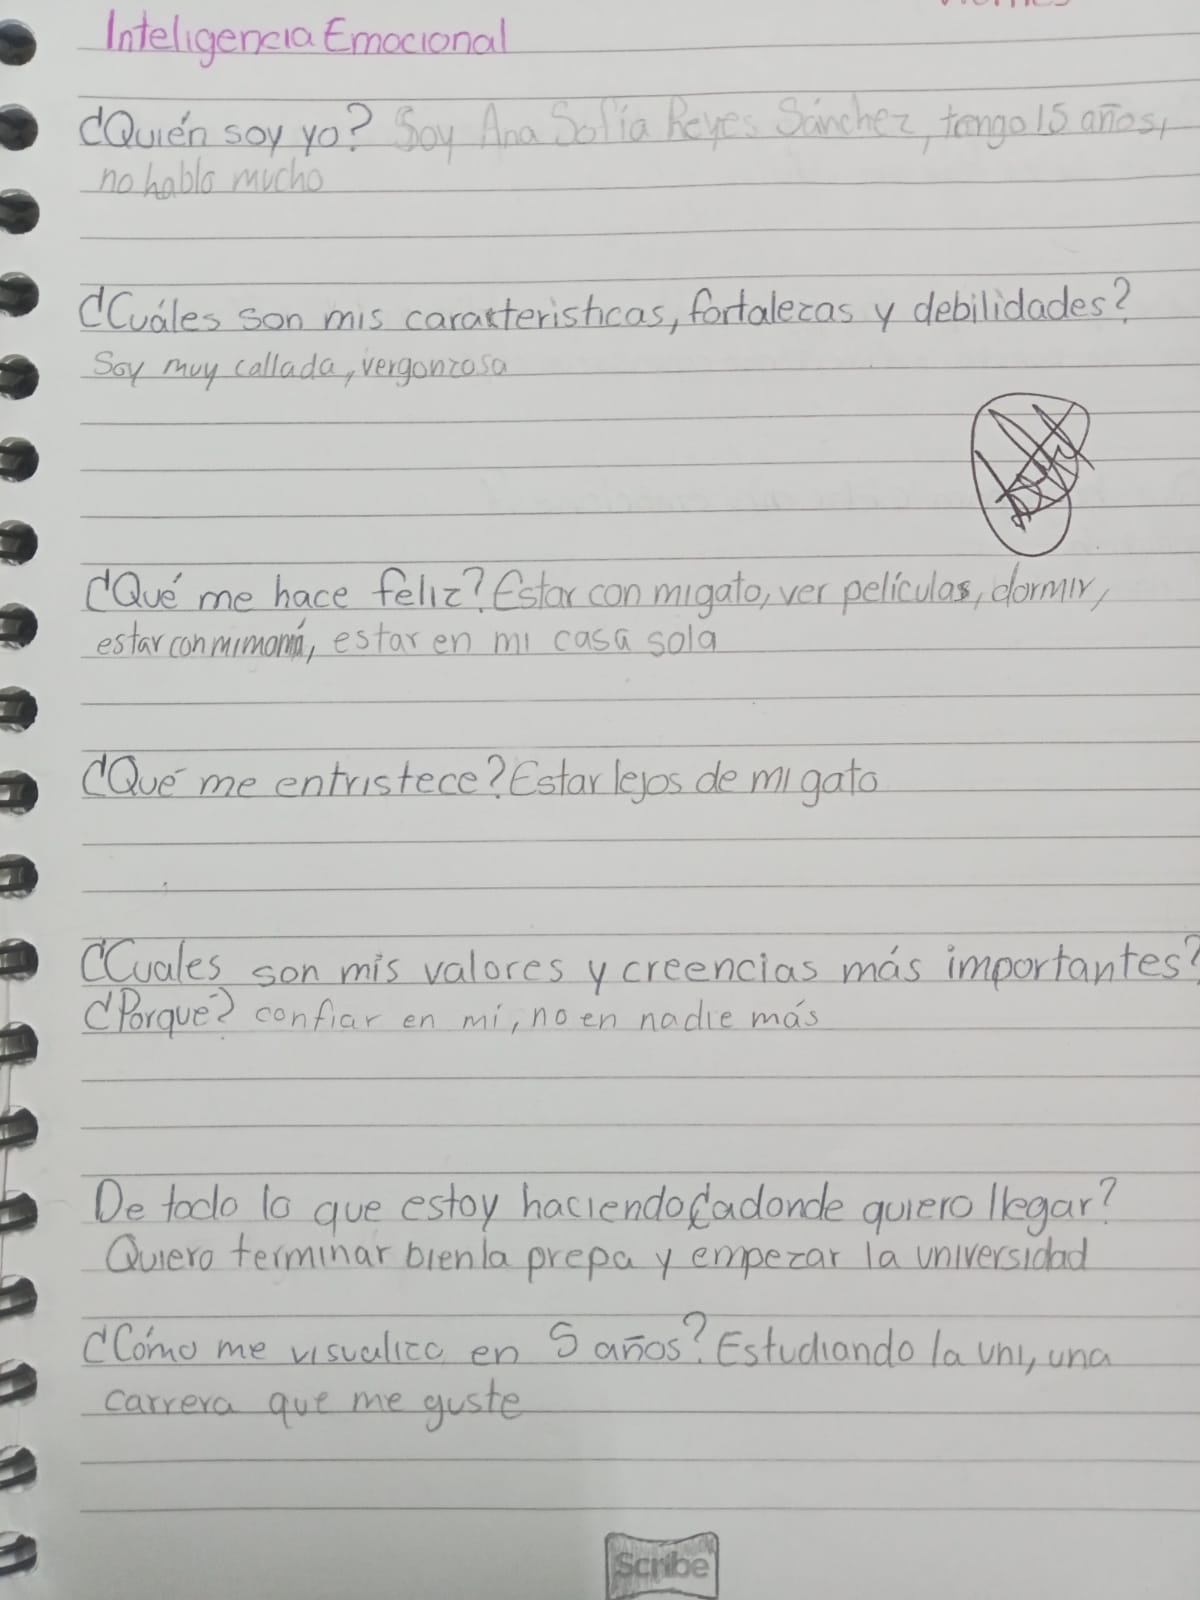 Inteligencia Emocional
¿Quién soy yo? Soy Ana Sofía Reyes Sánchez, tengo 15 años,
no hablo mucho
¿Cuáles son mis caracteristicas, fortalezas y debilidades?
Soy muy callada, vergonzosa
¿Qué me hace feliz? Estar con mi gato, ver películas, dormir,
estar con mi mamá, estar en mi casa sola
¿Qué me entristece? Estar lejos de mi gato
¿Cuales son mis valores y creencias más importantes?
¿Porqué? confiar en mí, no en nadie más
De todo lo que estoy haciendo ¿a donde quiero llegar?
Quiero terminar bien la prepa y empezar la universidad
¿Cómo me visualizo en 5 años? Estudiando la uni, una
carrera que me guste
Scribe